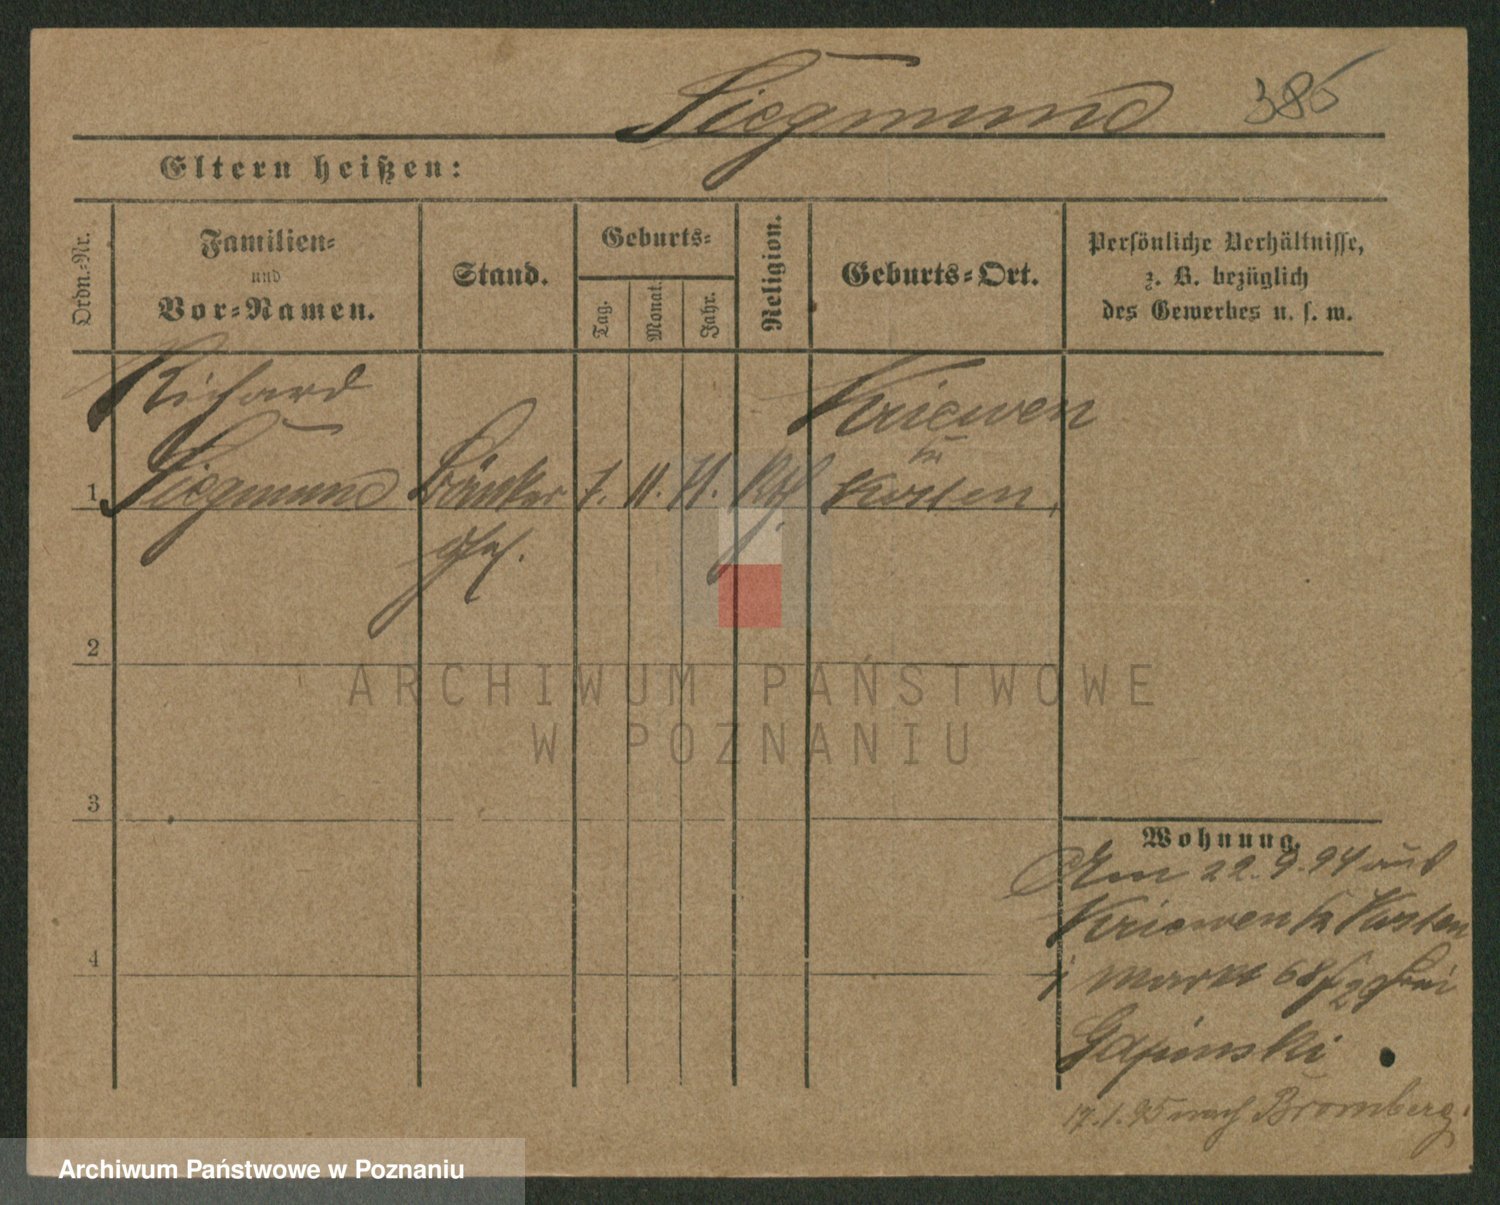 Siegmund 385
Eltern heißen:
Ordn.-Nr.
Familien-
und
Vor-Namen.
Stand.
Geburts-
Tag.
Monat.
Jahr.
Religion.
Geburts-Ort.
Persönliche Verhältnisse,
z. B. bezüglich
des Gewerbes u. s. w.
Richard
Kriewen
1 Siegmund 7. 11. 71. Kosten,
2
ARCHIWUM PAŃSTWOWE
W POZNANIU
3
Wohnung.
Am 22.9.94 aus
Kriewen Kosten
Markt 68
4
17.1.95 nach Bromberg.
Archiwum Państwowe w Poznaniu